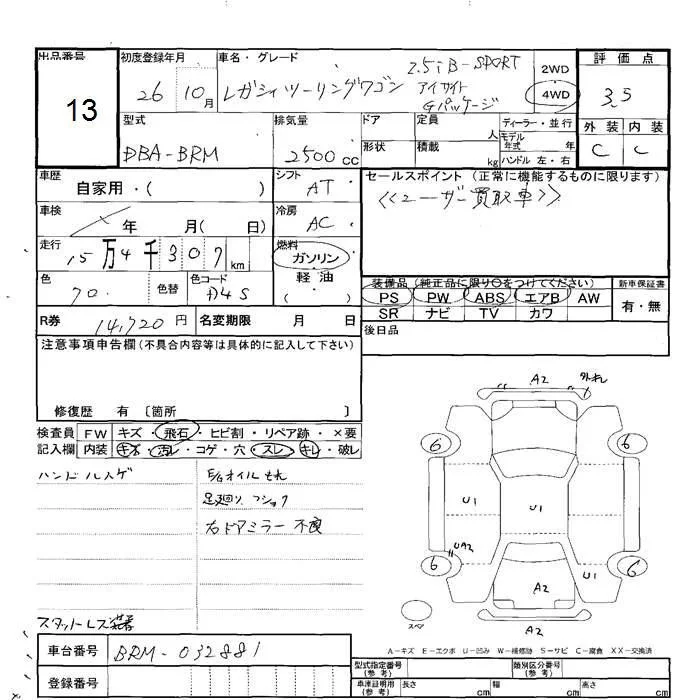 出品番号 初度登録年月 車名・グレード 評価点
13
26 10月 レガシィツーリングワゴン 2.5i B-SPORT アイサイト Gパッケージ
2WD
4WD
3.5
型式 排気量 ドア 定員 人 ディーラー・並行
モデル年式 年
形状 積載 kg ハンドル 左・右
外装 内装
DBA-BRM 2500cc C C
車歴 自家用・( ) シフト AT
セールスポイント(正常に機能するものに限ります)
<<ユーザー買取車>>
車検 年 月( 日) 冷房 AC
走行 15万4千307km 燃料 ガソリン
軽油
( )
色 70. 色替 色コード D4S
装備品(純正品に限り○をつけてください) 新車保証書
PS PW ABS エアB AW 有・無
SR ナビ TV カワ
R券 14,720円 名変期限 月 日
後日品
注意事項申告欄(不具合内容等は具体的に記入して下さい)
修復歴 有 〔箇所 〕
検査員 FW キズ・飛石・ヒビ割・リペア跡・×要
記入欄 内装 キズ・汚レ・コゲ・穴・スレ・キレ・破レ
ハンドルスゲ E/gオイルもれ
足廻り、ショック
右ドアミラー不良
スタットレス装着
A2
6 6
U1 U1
UA2
6 A2 U1 6
スペア
A2
A-キズ E-エクボ U-凹み W-補修跡 S-サビ C-腐食 XX-交換済
車台番号 BRM-032881
登録番号
型式指定番号(参考) 類別区分番号(参考)
車庫証明用(参考) 長さ cm 幅 cm 高さ cm